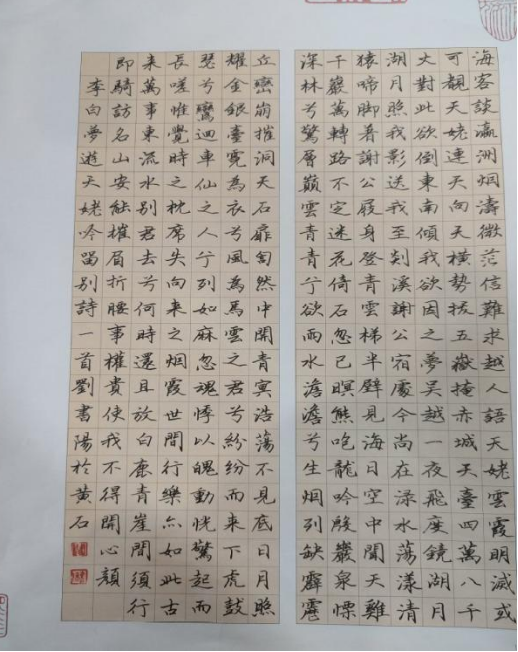 海客談瀛洲烟濤微茫信難求越人語天姥雲霞明滅或
可覩天姥連天向天橫勢拔五嶽掩赤城天臺四萬八千
丈對此欲倒東南傾我欲因之夢吳越一夜飛度鏡湖月
湖月照我影送我至剡溪謝公宿處今尚在淥水蕩漾清
猿啼脚着謝公屐身登青雲梯半壁見海日空中聞天雞
千巖萬轉路不定迷花倚石忽已暝熊咆龍吟殷巖泉慄
深林兮驚層巔雲青青兮欲雨水澹澹兮生烟列缺霹靂
丘巒崩摧洞天石扉訇然中開青冥浩蕩不見底日月照
耀金銀臺霓為衣兮風為馬雲之君兮紛紛而来下虎鼓
瑟兮鸞迴車仙之人兮列如麻忽魂悸以魄動怳驚起而
長嗟惟覺時之枕席失向来之烟霞世間行樂亦如此古
来萬事東流水別君去兮何時還且放白鹿青崖間須行
即騎訪名山安能摧眉折腰事權貴使我不得開心顏
李白夢遊天姥吟留別詩一首劉書陽於黃石